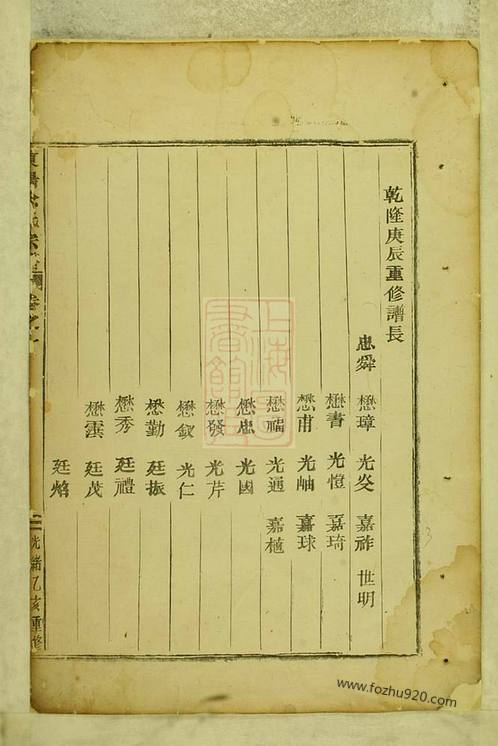 乾隆庚辰重修譜長
忠舜 懋璋 光炎 嘉祚 世明
懋書 光愷 嘉琦
懋甫 光岫 嘉球
懋福 光通 嘉植
懋忠 光國
懋發 光芹
懋釵 光仁
懋勤 廷振
懋秀 廷禮
懋雲 廷茂
廷焰
光緒乙亥重修
上海圖書館藏
www.fozhu920.com